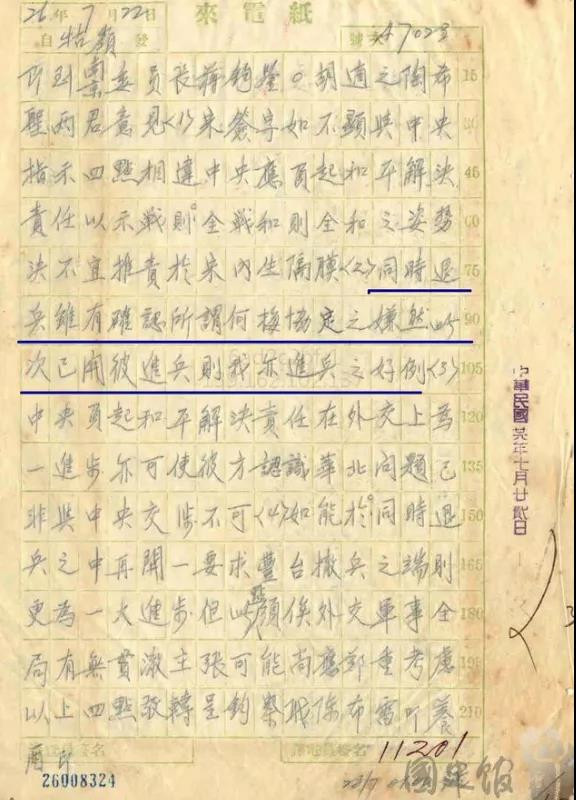 來電紙
26年7月22日
自牯嶺發
號次47023
南京委員長蔣鈞鑒。胡適之陶希 15
聖兩君意見(1)宋簽字如不顯與中央 30
指示四點相違中央應負起和平解決 45
責任以示戰則全戰和則全和之姿勢 60
決不宜推責於宋內生隔膜(2)同時退 75
兵雖有確認所謂何梅協定之嫌然此 90
次已開彼進兵則我亦進兵之好例(3) 105
中央負起和平解決責任在外交上為 120
一進步亦可使彼方認識華北問題已 135
非與中央交涉不可(4)如能於同時退 150
兵之中再開一要求豐台撤兵之端則 165
更為一大進步但此顧俟外交軍事全 180
局有無貫澈主張可能尚應鄭重考慮 195
以上四點敬轉呈鈞察職陳布雷叩養 210
印
11201
26008324
中華民國廿六年七月廿貳日
國史館